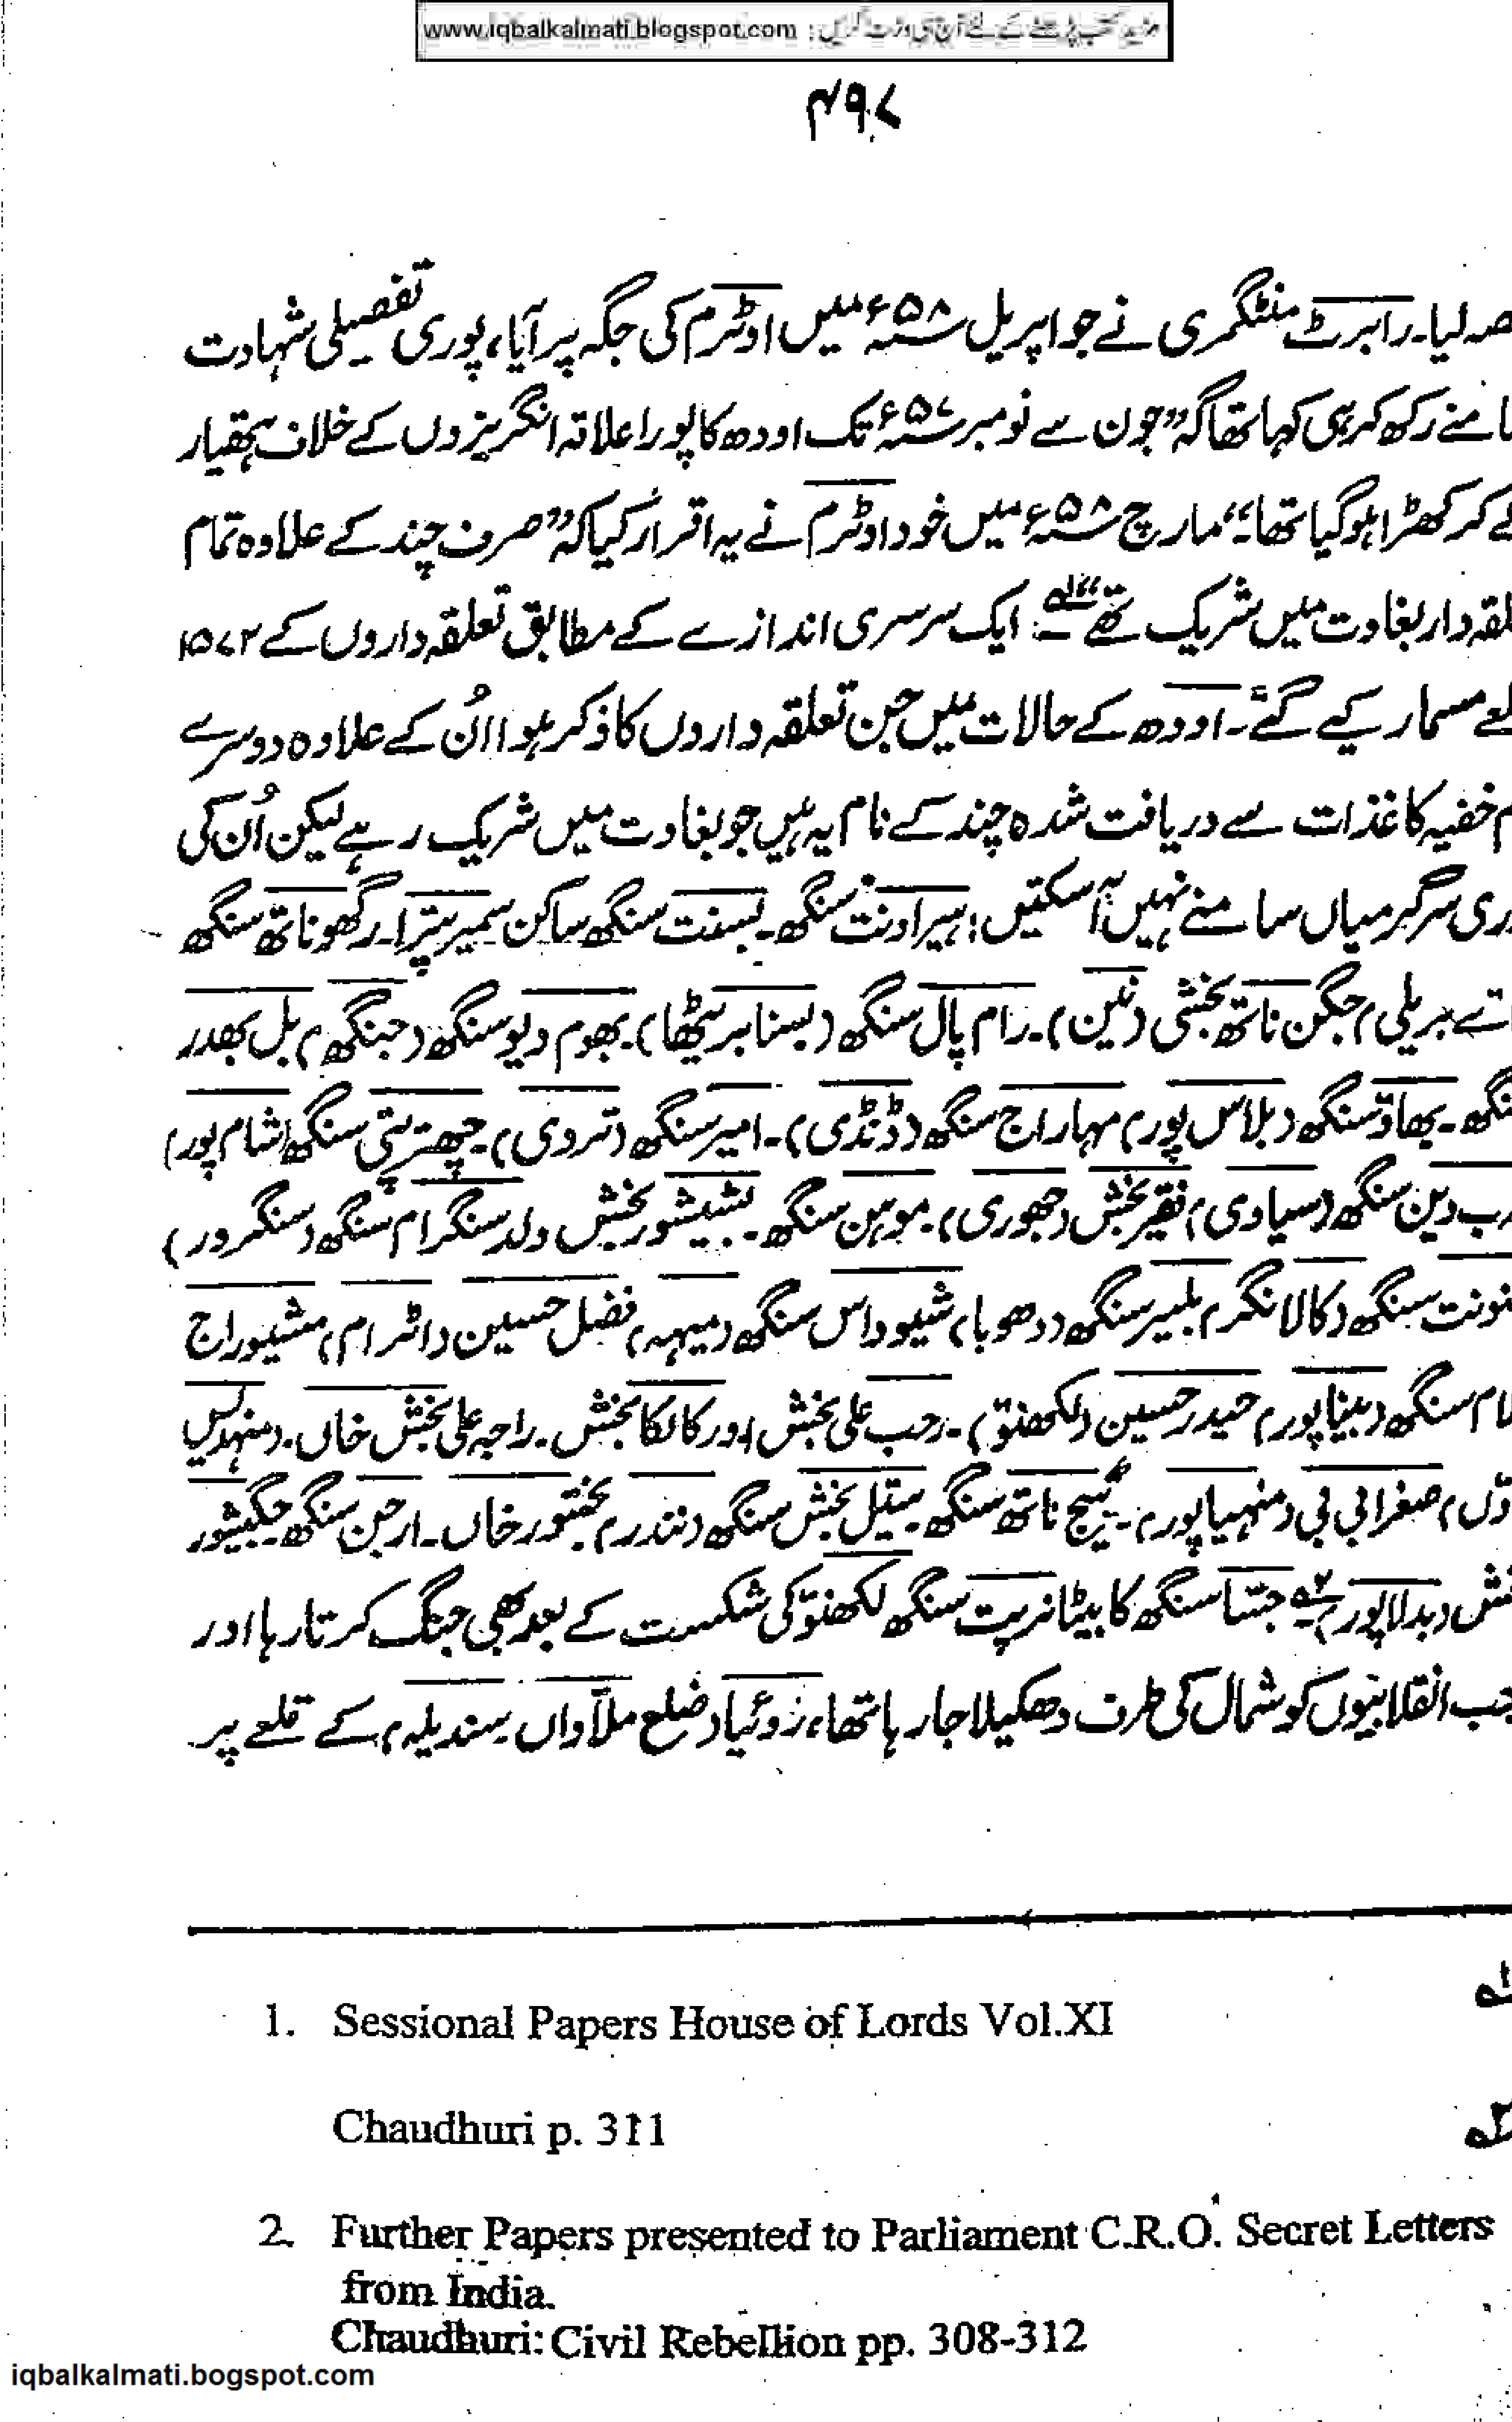 مزید کتب پڑھنے کے لئے آج ہی وزٹ کریں : www.iqbalkalmati.blogspot.com
۴۹۷
صہ لیا۔ رابرٹ منٹگمری نے جو اپریل ۵۸ء میں اوٹرم کی جگہ پر آیا، پوری تفصیلی شہادت
امنے رکھ کر ہی کہا تھا کہ ”جون سے نومبر ۵۷ء تک اودھ کا پورا علاقہ انگریزوں کے خلاف ہتھیار
لے کر کھڑا ہو گیا تھا۔“ مارچ ۵۸ء میں خود اوٹرم نے یہ اقرار کیا کہ ”صرف چند کے علاوہ تمام
لقہ دار بغاوت میں شریک تھے“ ۱؎ ایک سرسری اندازے کے مطابق تعلقہ داروں کے ۱۵۷۲
لعے مسمار کیے گئے۔ اودھ کے حالات میں جن تعلقہ داروں کا ذکر ہوا اُن کے علاوہ دوسرے
م خفیہ کاغذات سے دریافت شدہ چند کے نام یہ ہیں جو بغاوت میں شریک رہے لیکن اُن کی
ری سرگرمیاں سامنے نہیں آ سکتیں: ہیراونت سنگھ۔ بسنت سنگھ ساکن سمیرپترا۔ رگھوناتھ سنگھ
ئے بریلی) جگن ناتھ بخشی (نین)۔ رام پال سنگھ (بسنا برسیٹھا)۔ بھوم دیو سنگھ (جنگھ) بل بھدر
نگھ۔ بھاؤ سنگھ (بلاس پور) مہاراج سنگھ (ڈنڈی)۔ امیر سنگھ (تردی)۔ چھترپتی سنگھ (شام پور)
رب دین سنگھ (سیاوی) فقیر بخش (جھوری)۔ موہن سنگھ۔ بشیشور بخش ولد سنگرام سنگھ (سنگرور)
نونت سنگھ (کالا نگر) بلبیر سنگھ (دھوبا) شیو داس سنگھ (میہہ) فضل حسین (اٹرام) شیوراج
ام سنگھ (بینا پور) حیدر حسین (لکھنؤ)۔ رجب علی بخش اور کالکا بخش۔ راجہ علی بخش خاں۔ (منہدیس
ؤں) صغرا بی بی (منہیا پور)۔ بیج ناتھ سنگھ۔ ستیل بخش سنگھ (نندر) بختور خاں۔ ارجن سنگھ جگیشور
خش (بدلا پور) ۲؎ جسّا سنگھ کا بیٹا نرپت سنگھ لکھنؤ کی شکست کے بعد بھی جنگ کرتا رہا اور
جب انقلابیوں کو شمال کی طرف دھکیلا جا رہا تھا، زوئیا (ضلع ملاّواں سندیلہ) کے قلعے پر
۱؎
1. Sessional Papers House of Lords Vol.XI
Chaudhuri p. 311
۲؎
2. Further Papers presented to Parliament C.R.O. Secret Letters
from India.
Chaudhuri: Civil Rebellion pp. 308-312
iqbalkalmati.bogspot.com